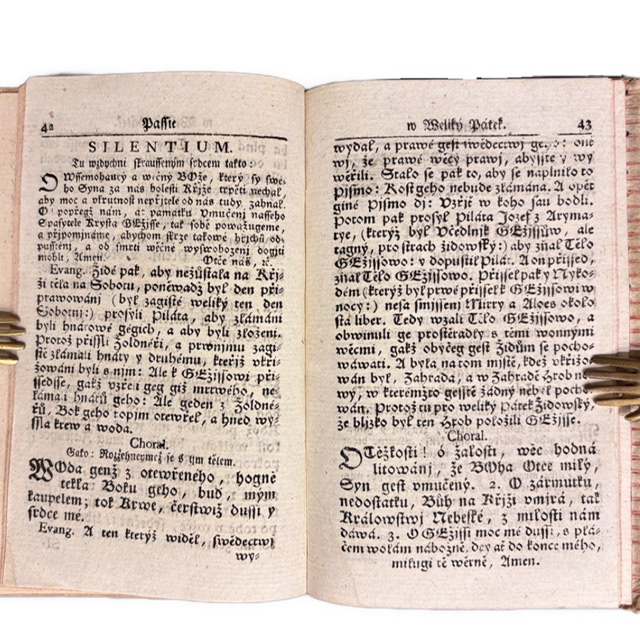 42 Passie
SILENTIUM.
Tu wzdychni skraussseným srdcem takto:
O Wssemohaucý a wěčný BOže, který sy swé-
ho Syna za nás bolesti Křjže trpěti nechal,
aby moc a ukrutnost nepřjtele od nás tudy zahnal.
O popřegž nám, a památku Umučenj nasseho
Spasytele Krysta GEžjsse, tak sobě powažugeme,
a připomjnáme, abychom skrze takowé hřjchů od-
pusstěnj, a od smrti wěčné wyswobozenj dogjti
mohli, Amen. Otče náš, rc.
Evang. Židé pak, aby nezůstala na Křj-
ži těla na Sobotu, poněwádž byl den při-
prawowánj (byl zagisté weliký ten den
Sobotnj:) prosyli Piláta, aby zlámáni
byli hnátowé gegich, a aby byli složeni.
Protož přissli Žoldnéři, a prwnjmu zagi-
sté zlámali hnáty y druhému, kteřjž vkři-
žowáni byli s njm: Ale k GEžjssowi při-
ssedsse, gakž vzřeli geg giž mrtwého, ne-
lámali hnátů geho: Ale geden z Žoldné-
řů, Bok geho kopjm otewřel, a hned wy-
ssla krew a woda.
Choral.
Gako: Rozžehneymež se s tjm tělem.
WOda genž z otewřeného, hogně
tekla Boku geho, bud mým
kaupelem; tok Krwe, čerstwiž dussi y
srdce mé.
Evang. A ten kterýž widěl, swědectwj
wy-
w Weliký Pátek. 43
wydal, a prawé gest swědectwj geho: onť
wj, že prawé wěcy prawj, abysste y wy
wěřili. Stalo se pak to, aby se naplnilo to
Pjsmo: Kost geho nebude zlámána. A opět
giné Pjsmo dj: Vzřjť w koho sau bodli.
Potom pak prosyl Piláta Jozef z Aryma-
tye, (kterýž byl Včedlnjk GEžjssůw, ale
tagný, pro strach židowský:) aby sňal Tělo
GEžjssowo: y dopustil Pilát. A on přissed,
sňal Tělo GEžjssowo. Přissel pak y Nyko-
dém (kterýž byl prwé přissel k GEžjssowi w
nocy:) nesa smjssenj Mirry a Aloes okolo
sta liber. Tedy wzali Tělo GEžjssowo, a
obwinuli ge prostěradly s těmi wonnými
wěcmi, gakž obyčeg gest Židům se pocho-
wáwati. A byla na tom mjstě, kdež vkřižo-
wán byl, Zahrada, a w Zahradě Hrob no-
wý, w kterémžto gesstě žádný nebyl pocho-
wán. Protož tu pro weliký Pátek Židowský,
že bljzko byl ten Hrob položili GEžjsse.
Choral.
O Těžkosti! ó žalosti, wěc hodná
litowánj, že BOha Otce milý,
Syn gest vmučený. 2. O zármutku,
nedostatku, Bůh na Křjži vmjrá, tak
Králowstwj Nebeské, z milosti nám
dáwá. 3. O GEžjssi moc mé dussi, s plá-
čem wolám nábožně, dey ať do konce mého,
milugi tě wěrně, Amen.